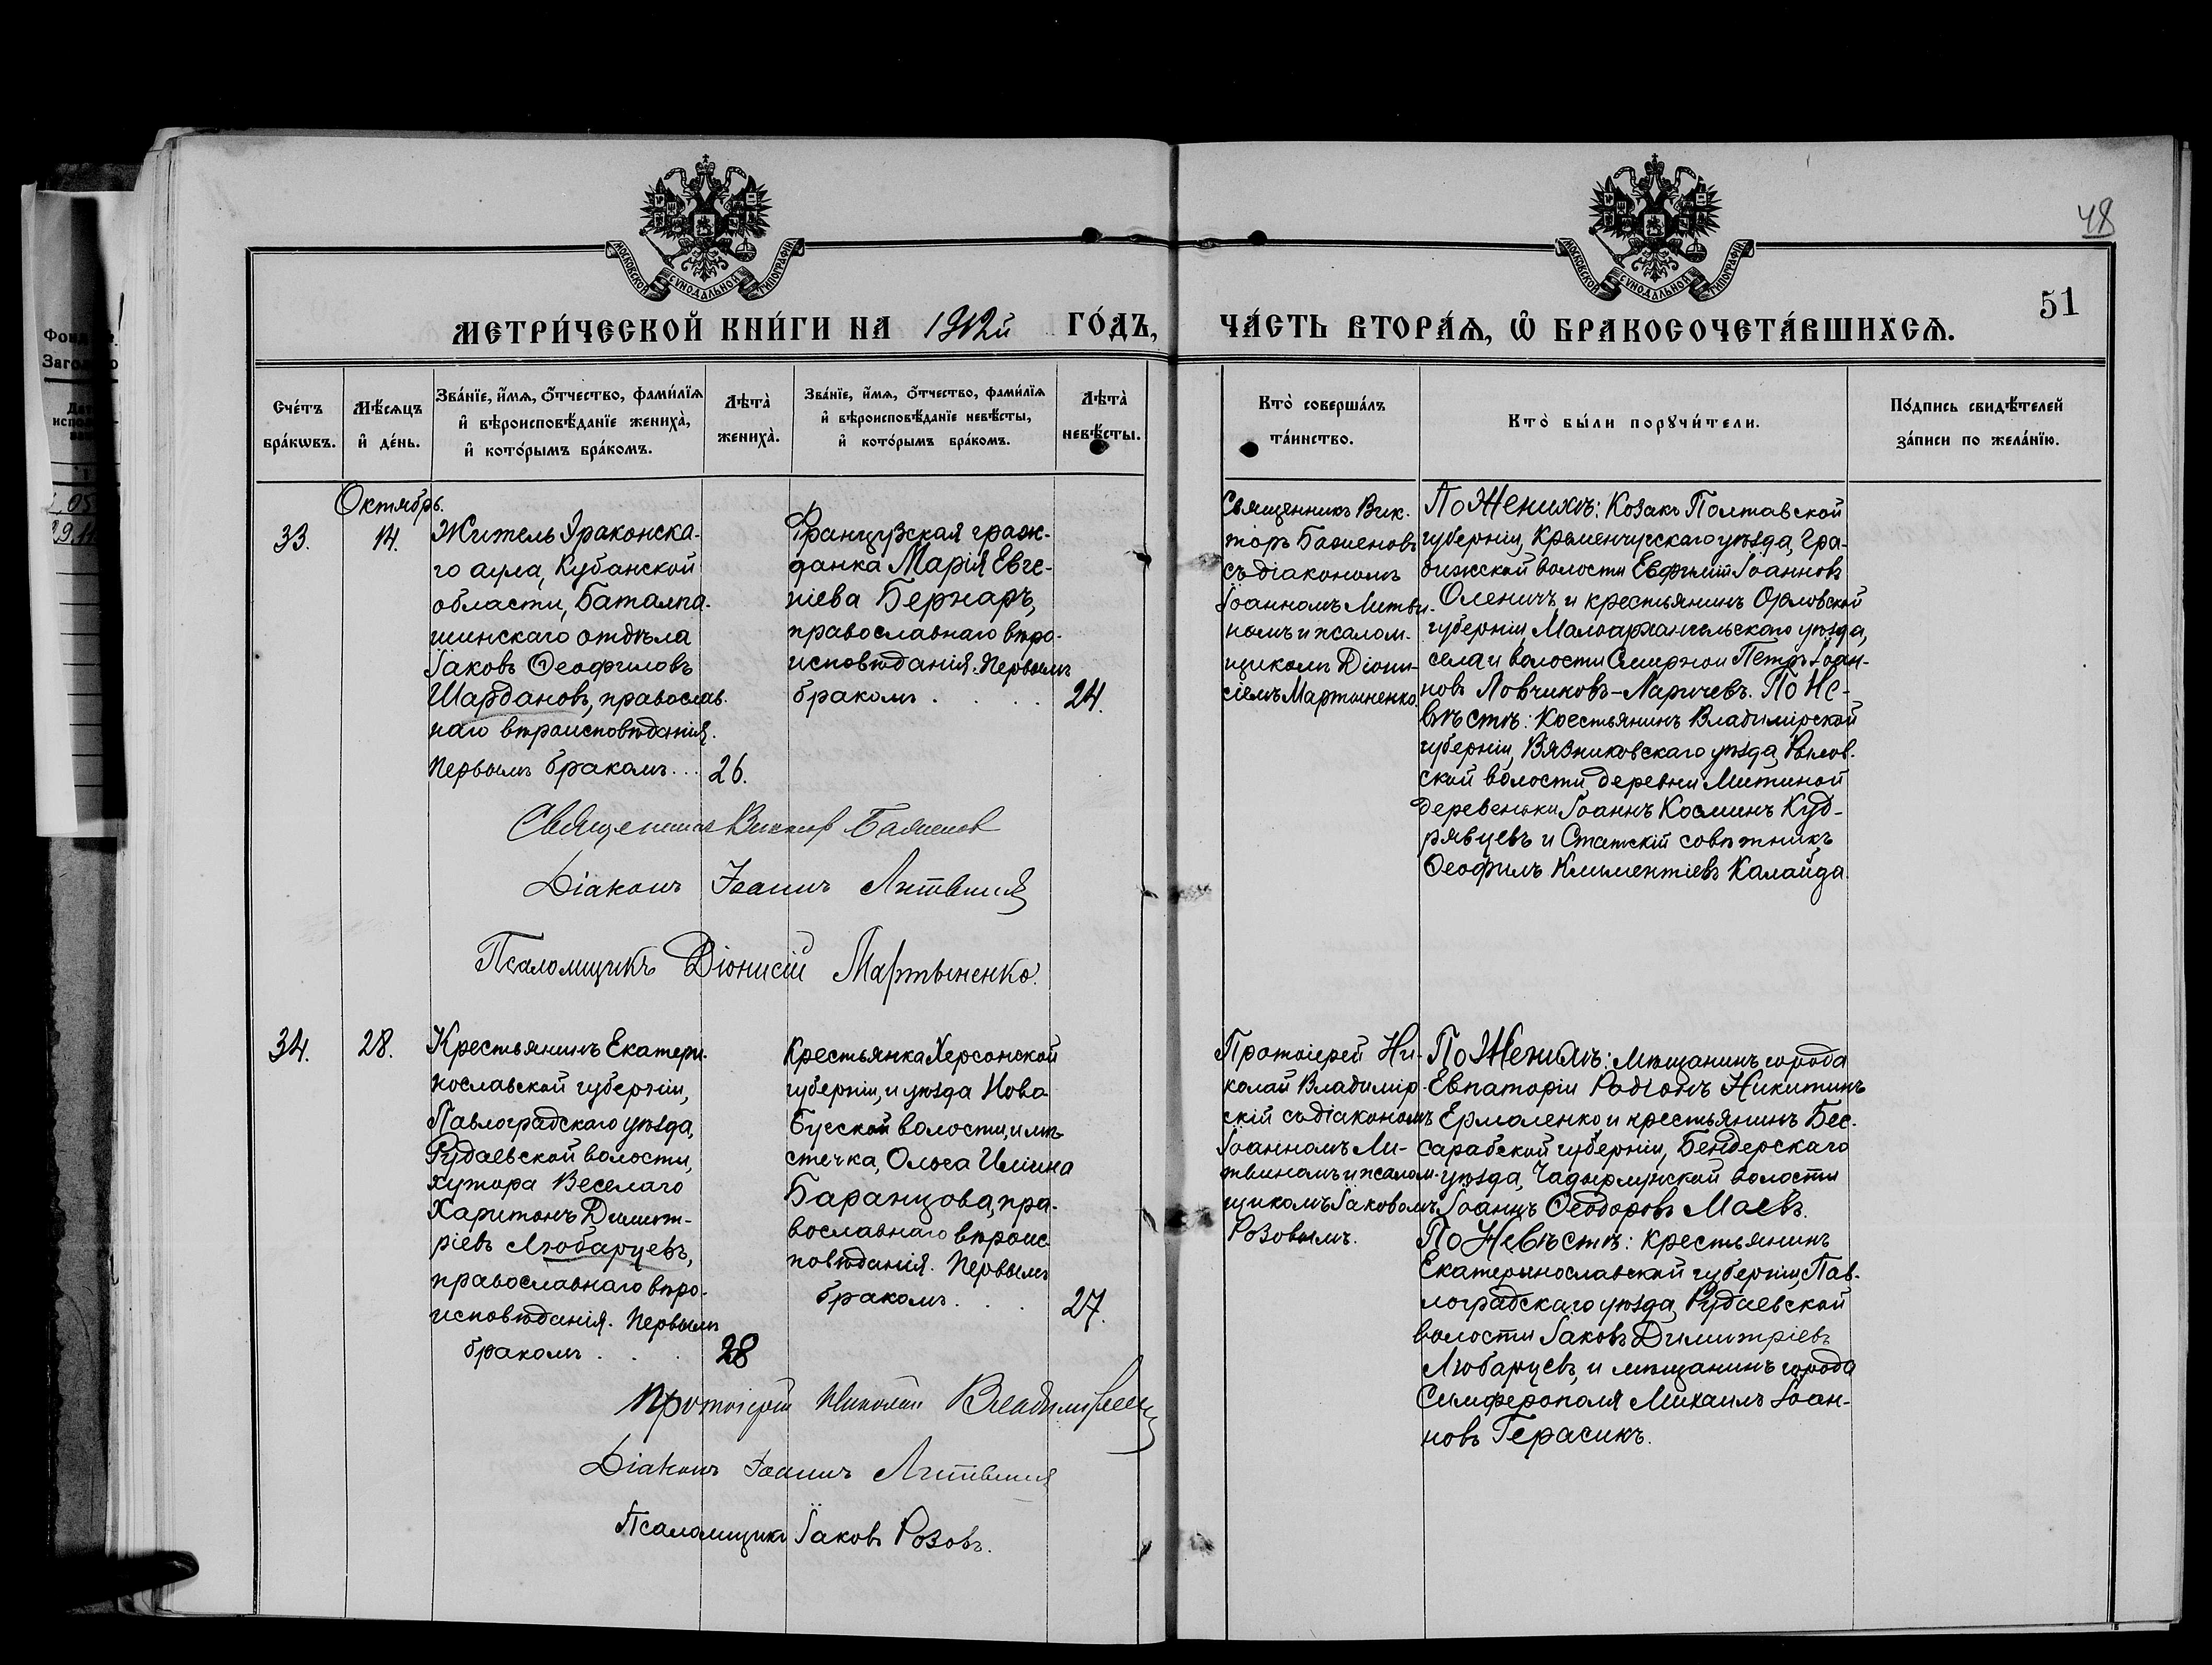 48
51
МОСКОВСКОЙ СѴНОДАЛЬНОЙ ТИПОГРАФІИ
МОСКОВСКОЙ СѴНОДАЛЬНОЙ ТИПОГРАФІИ
МЕТРИ́ЧЕСКОЙ КНИ́ГИ НА 1912й ГО́ДЪ,
ЧА́СТЬ ВТОРА́Ѧ, Ѽ БРАКОСОЧЕТА́ВШИХСѦ.
Сче́тъ бра́кѡвъ.
Мѣ́сѧцъ и҆ де́нь.
Зва́нїе, и҆́мѧ, ѻ҆́тчество, фами́лїѧ
и҆ вѣроисповѣ́данїе жениха̀,
и҆ кото́рымъ бра́комъ.
Лѣта̀ жениха̀.
Зва́нїе, и҆́мѧ, ѻ҆́тчество, фами́лїѧ
и҆ вѣроисповѣ́данїе невѣ́сты,
и҆ кото́рымъ бра́комъ.
Лѣта̀ невѣ́сты.
Кто̀ соверша́лъ
та́инство.
Кто̀ бы́ли порꙋчи́тели.
По́дпись свидѣ́телей
за́писи по жела́нїю.
Октябрь.
33.
14.
Житель Ираконска-
го аула, Кубанской
области, Баталпа-
шинскаго отдѣла
Іаковъ Ѳеофиловъ
Шарданов, православ-
наго вѣроисповѣданія.
Первымъ бракомъ... 26.
Французская граж-
данка Марія Евге-
ніева Бернаръ,
православнаго вѣро-
исповѣданія. Первымъ
бракомъ . . . . 24.
Священникъ Вик-
торъ Баженовъ
съ діакономъ
Іоанномъ Литви-
номъ и псалом-
щикомъ Діони-
сіемъ Мартыненко.
По Женихѣ: Козакъ Полтавской
губерніи, Кременчугскаго уѣзда, Гра-
дижской волости Евфимій Іоанновъ
Оленичъ и крестьянинъ Орловской
губерніи, Малоархангельскаго уѣзда,
села и волости Смирной Петръ Іоан-
новъ Ловчиковъ-Ларичевъ. По Не-
вѣстѣ: Крестьянинъ Владимірской
губерніи, Вязниковскаго уѣзда, Рылов-
ской волости, деревни Митиной
деревеньки Іоаннъ Косминъ Куд-
рявцевъ и Статскій совѣтникъ
Ѳеофилъ Климентіевъ Калайда.
Священникъ Виктор Баженов
Діаконъ Іоаннъ Литвинъ
Псаломщикъ Діонисій Мартыненко.
34.
28.
Крестьянинъ Екатери-
нославской губерніи,
Павлоградскаго уѣзда,
Рудаевской волости,
хутора Веселаго
Харитонъ Димит-
ріевъ Любарцевъ,
православнаго вѣро-
исповѣданія. Первымъ
бракомъ . . . 28
Крестьянка Херсонской
губерніи, и уѣзда Ново-
Бугской волости, и мѣ-
стечка, Ольга Иліина
Баранцова, пра-
вославнаго вѣроис-
повѣданія. Первымъ
бракомъ . . . 27.
Протоіерей Ни-
колай Владимір-
скій съ діакономъ
Іоанномъ Ли-
твиномъ и псалом-
щикомъ Іаковомъ
Розовымъ.
По Женихѣ: Мѣщанинъ города
Евпаторіи Родіонъ Никитинъ
Ермоленко и крестьянинъ Бес-
сарабской губерніи, Бендерскаго
уѣзда, Чадырлунгской волости
Іоаннъ Ѳеодоровъ Маевъ.
По Невѣстѣ: крестьянинъ
Екатеринославской губерніи, Пав-
лоградскаго уѣзда, Рудаевской
волости Іаковъ Димитріевъ
Любарцевъ, и мѣщанинъ города
Симферополя Михаилъ Іоан-
новъ Герасикъ.
Протоіерей Николай Владимірскій
Діаконъ Іоаннъ Литвинъ
Псаломщикъ Іаковъ Розовъ.